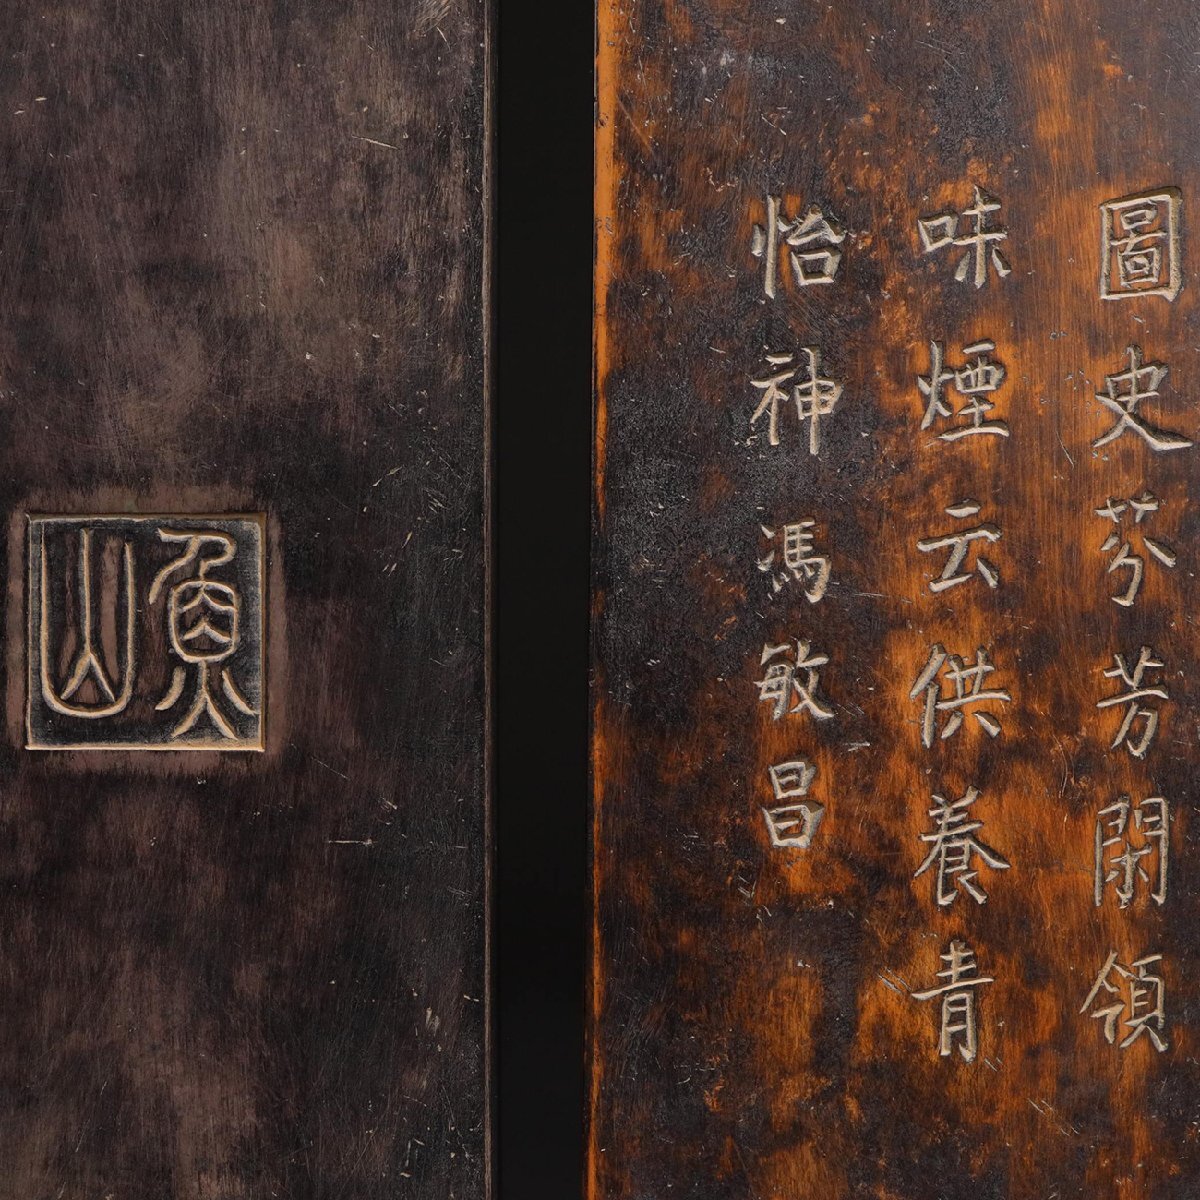 圖史芬芳閑領
味煙云供養青
怡神馮敏昌
魚山